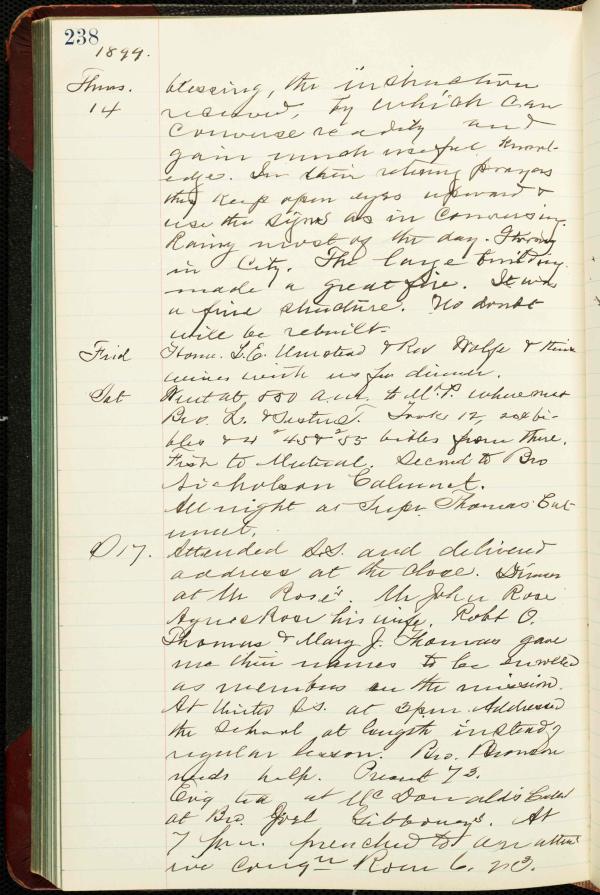 238
1899.
Thurs. blessing, the instruction
14 received, by which can
converse readily and
gain much useful knowl-
edge. In their retiring prayers
they keep open eyes upward &
use the signs as in conversing.
Rainy most of the day.
in City. The large building
made a great fire. It was
a fine structure. No doubt
will be rebuilt.
Frid Home. L.E. Umstead & Rev Wolfe & their
wives with us for dinner.
Sat Went at 880 a.m. to Mt. P. where met
Bro. L. & Sister T. Took 12, 20¢ bi-
bles & 4 45 & 2 55 bibles from there.
First to Mutual. Second to Bro
Nicholson Calumet.
All night at Supr. Thomas Cal-
umet.
D 17. Attended S.S. and delivered
address at the close. Dinner
at Mr Rose's. Mr John Rose
Agnes Rose his wife, Robt O.
Thomas & Mary J. Thomas gave
me their names to be enrolled
as members in the mission.
At United S.S. at 3 pm. Addressed
the school at length instead of
regular lesson. Bro. Bronson
needs help. Present 73.
Ev'g tea at McDonald's
at Bro. Joel Gibboney's. At
7 p.m. preached to an attent
ive congn Rom 6. v23.